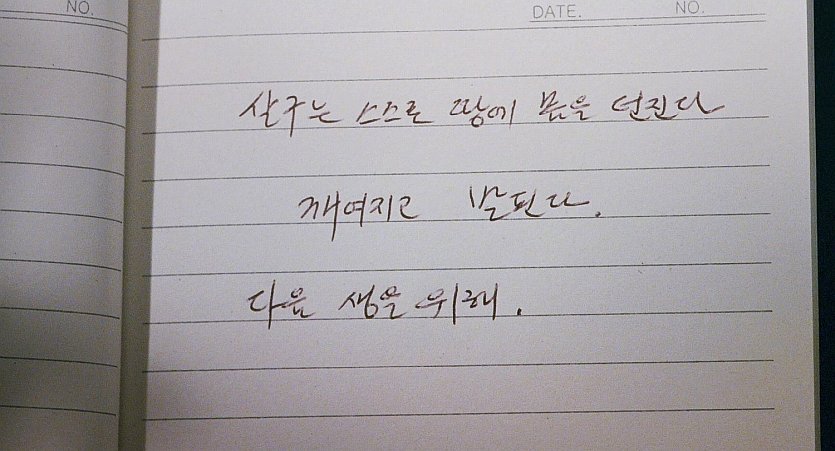 NO.
DATE. NO.
살구는 스스로 땅에 몸을 던진다
깨여지고 밟힌다.
다음 생을 위해.